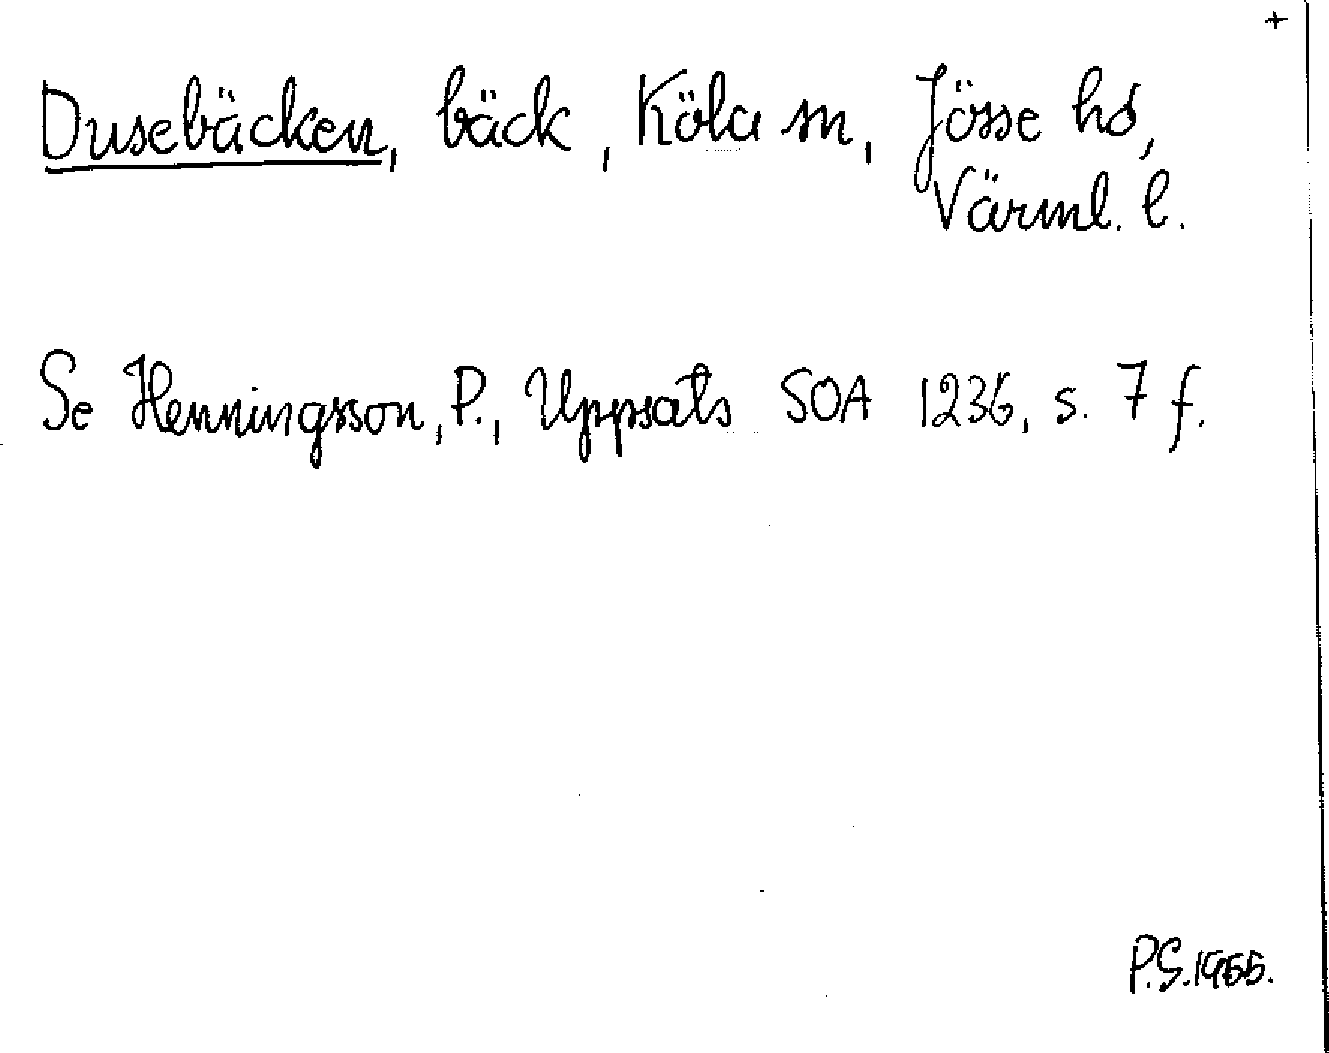 +
Dusebäcken, bäck, Köla sn, Jösse hd,
Värml. l.
Se Henningsson, P., Uppsats SOA 1236, s. 7 f.
P.S. 1966.